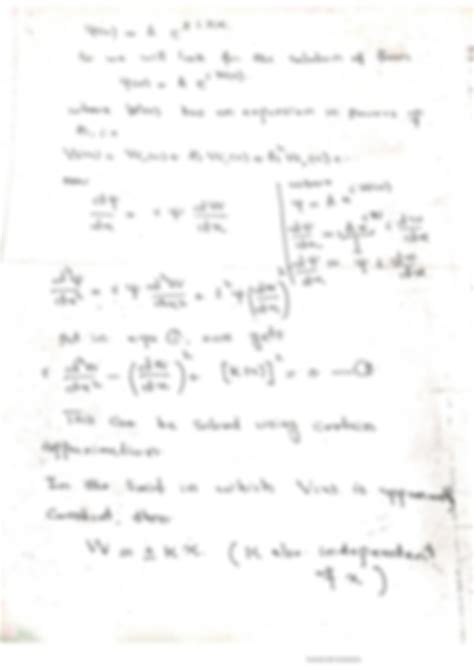 ψ(x) = A e^{± i k x}
So we will look for the solution of form
ψ(x) = A e^{i W(x)}
where W(x) has an expansion in powers of
ħ, i.e.
W(x) = W₀(x) + ħ W₁(x) + ħ² W₂(x) + ..
now
dψ/dx = i ψ dW/dx
where
ψ = A e^{i W(x)}
dψ/dx = A e^{iW} i dW/dx
dψ/dx = ψ i dW/dx
d²ψ/dx² = i ψ d²W/dx² + i² ψ (dW/dx)²
put in eqn ①, one gets
i d²W/dx² - (dW/dx)² + [k(x)]² = 0
This can be solved using certain
approximations
In the limit in which V(x) is approximately
constant, then
W = ± k x. (k also independent
of x)